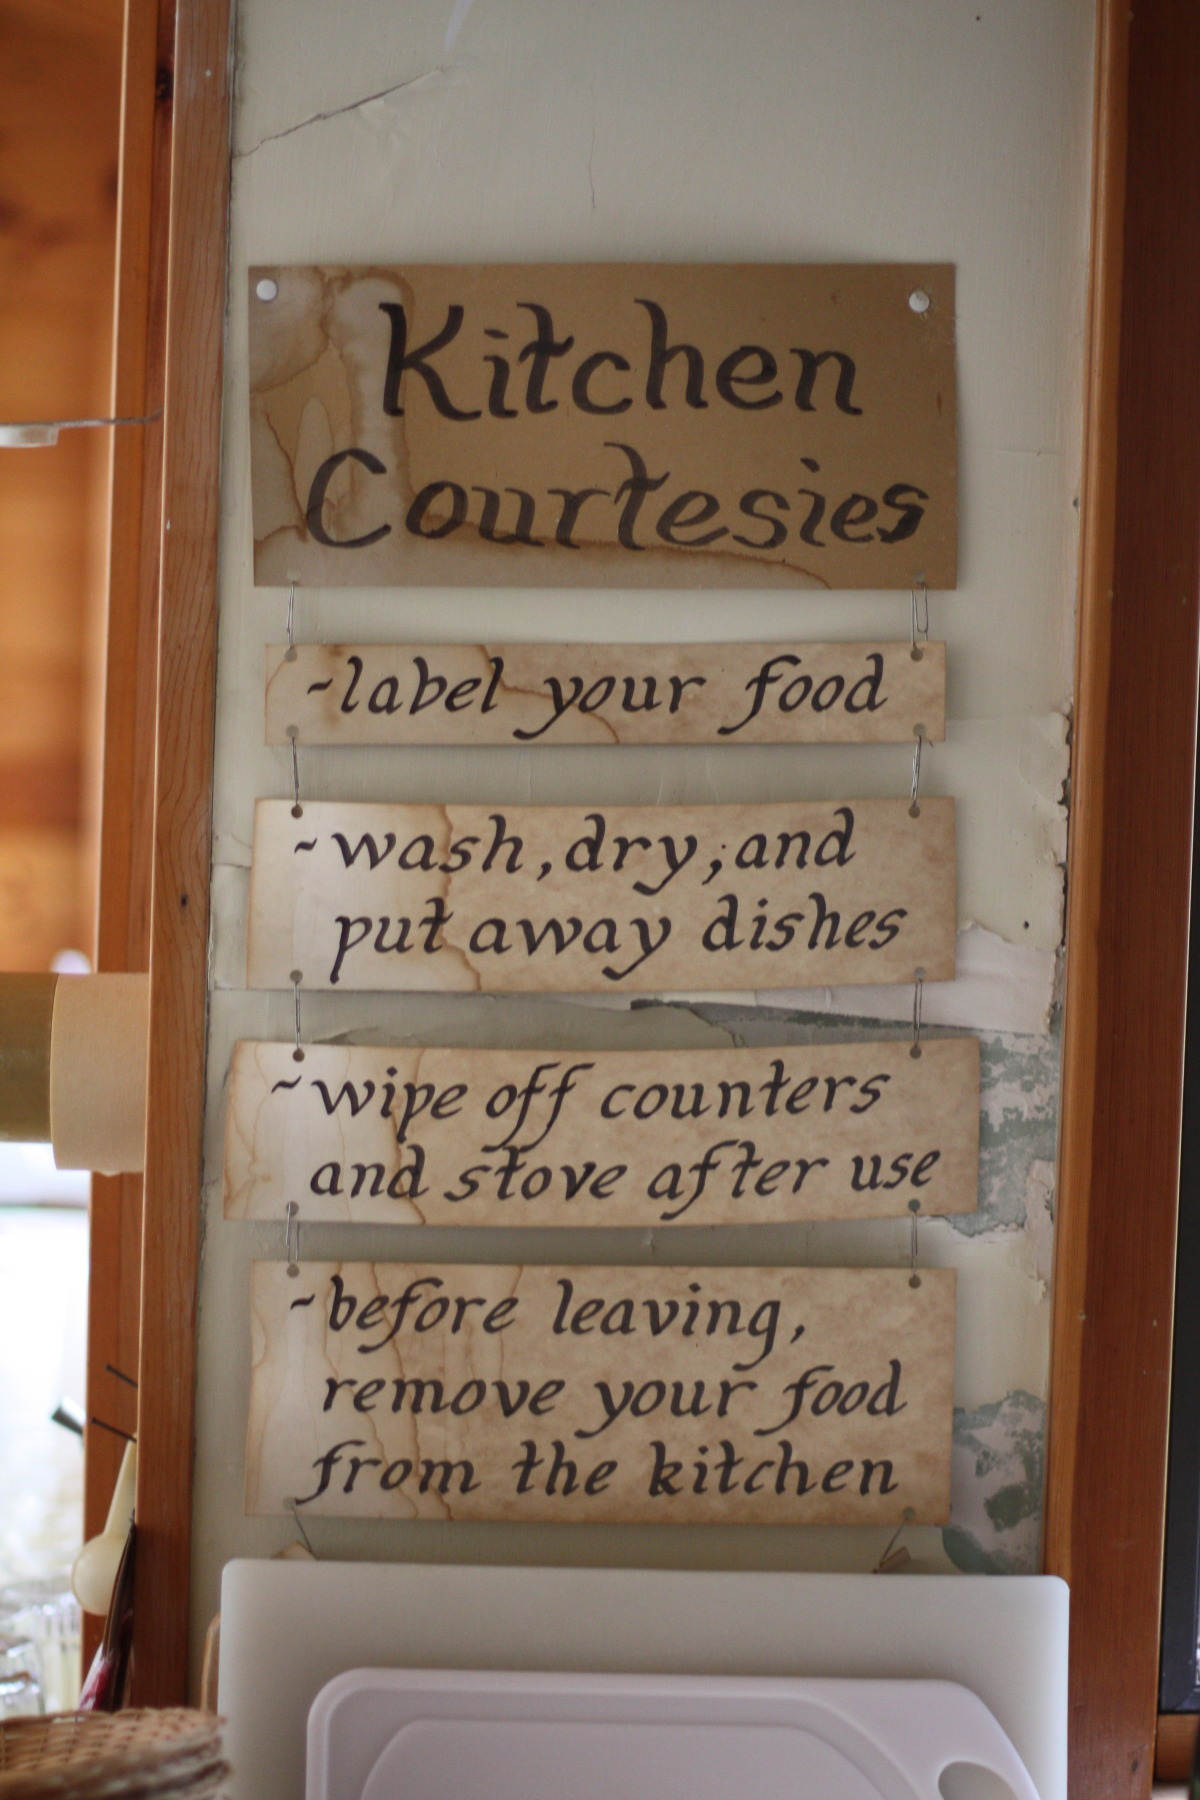 Kitchen
Courtesies
~label your food
~wash, dry, and
put away dishes
~wipe off counters
and stove after use
~before leaving,
remove your food
from the kitchen